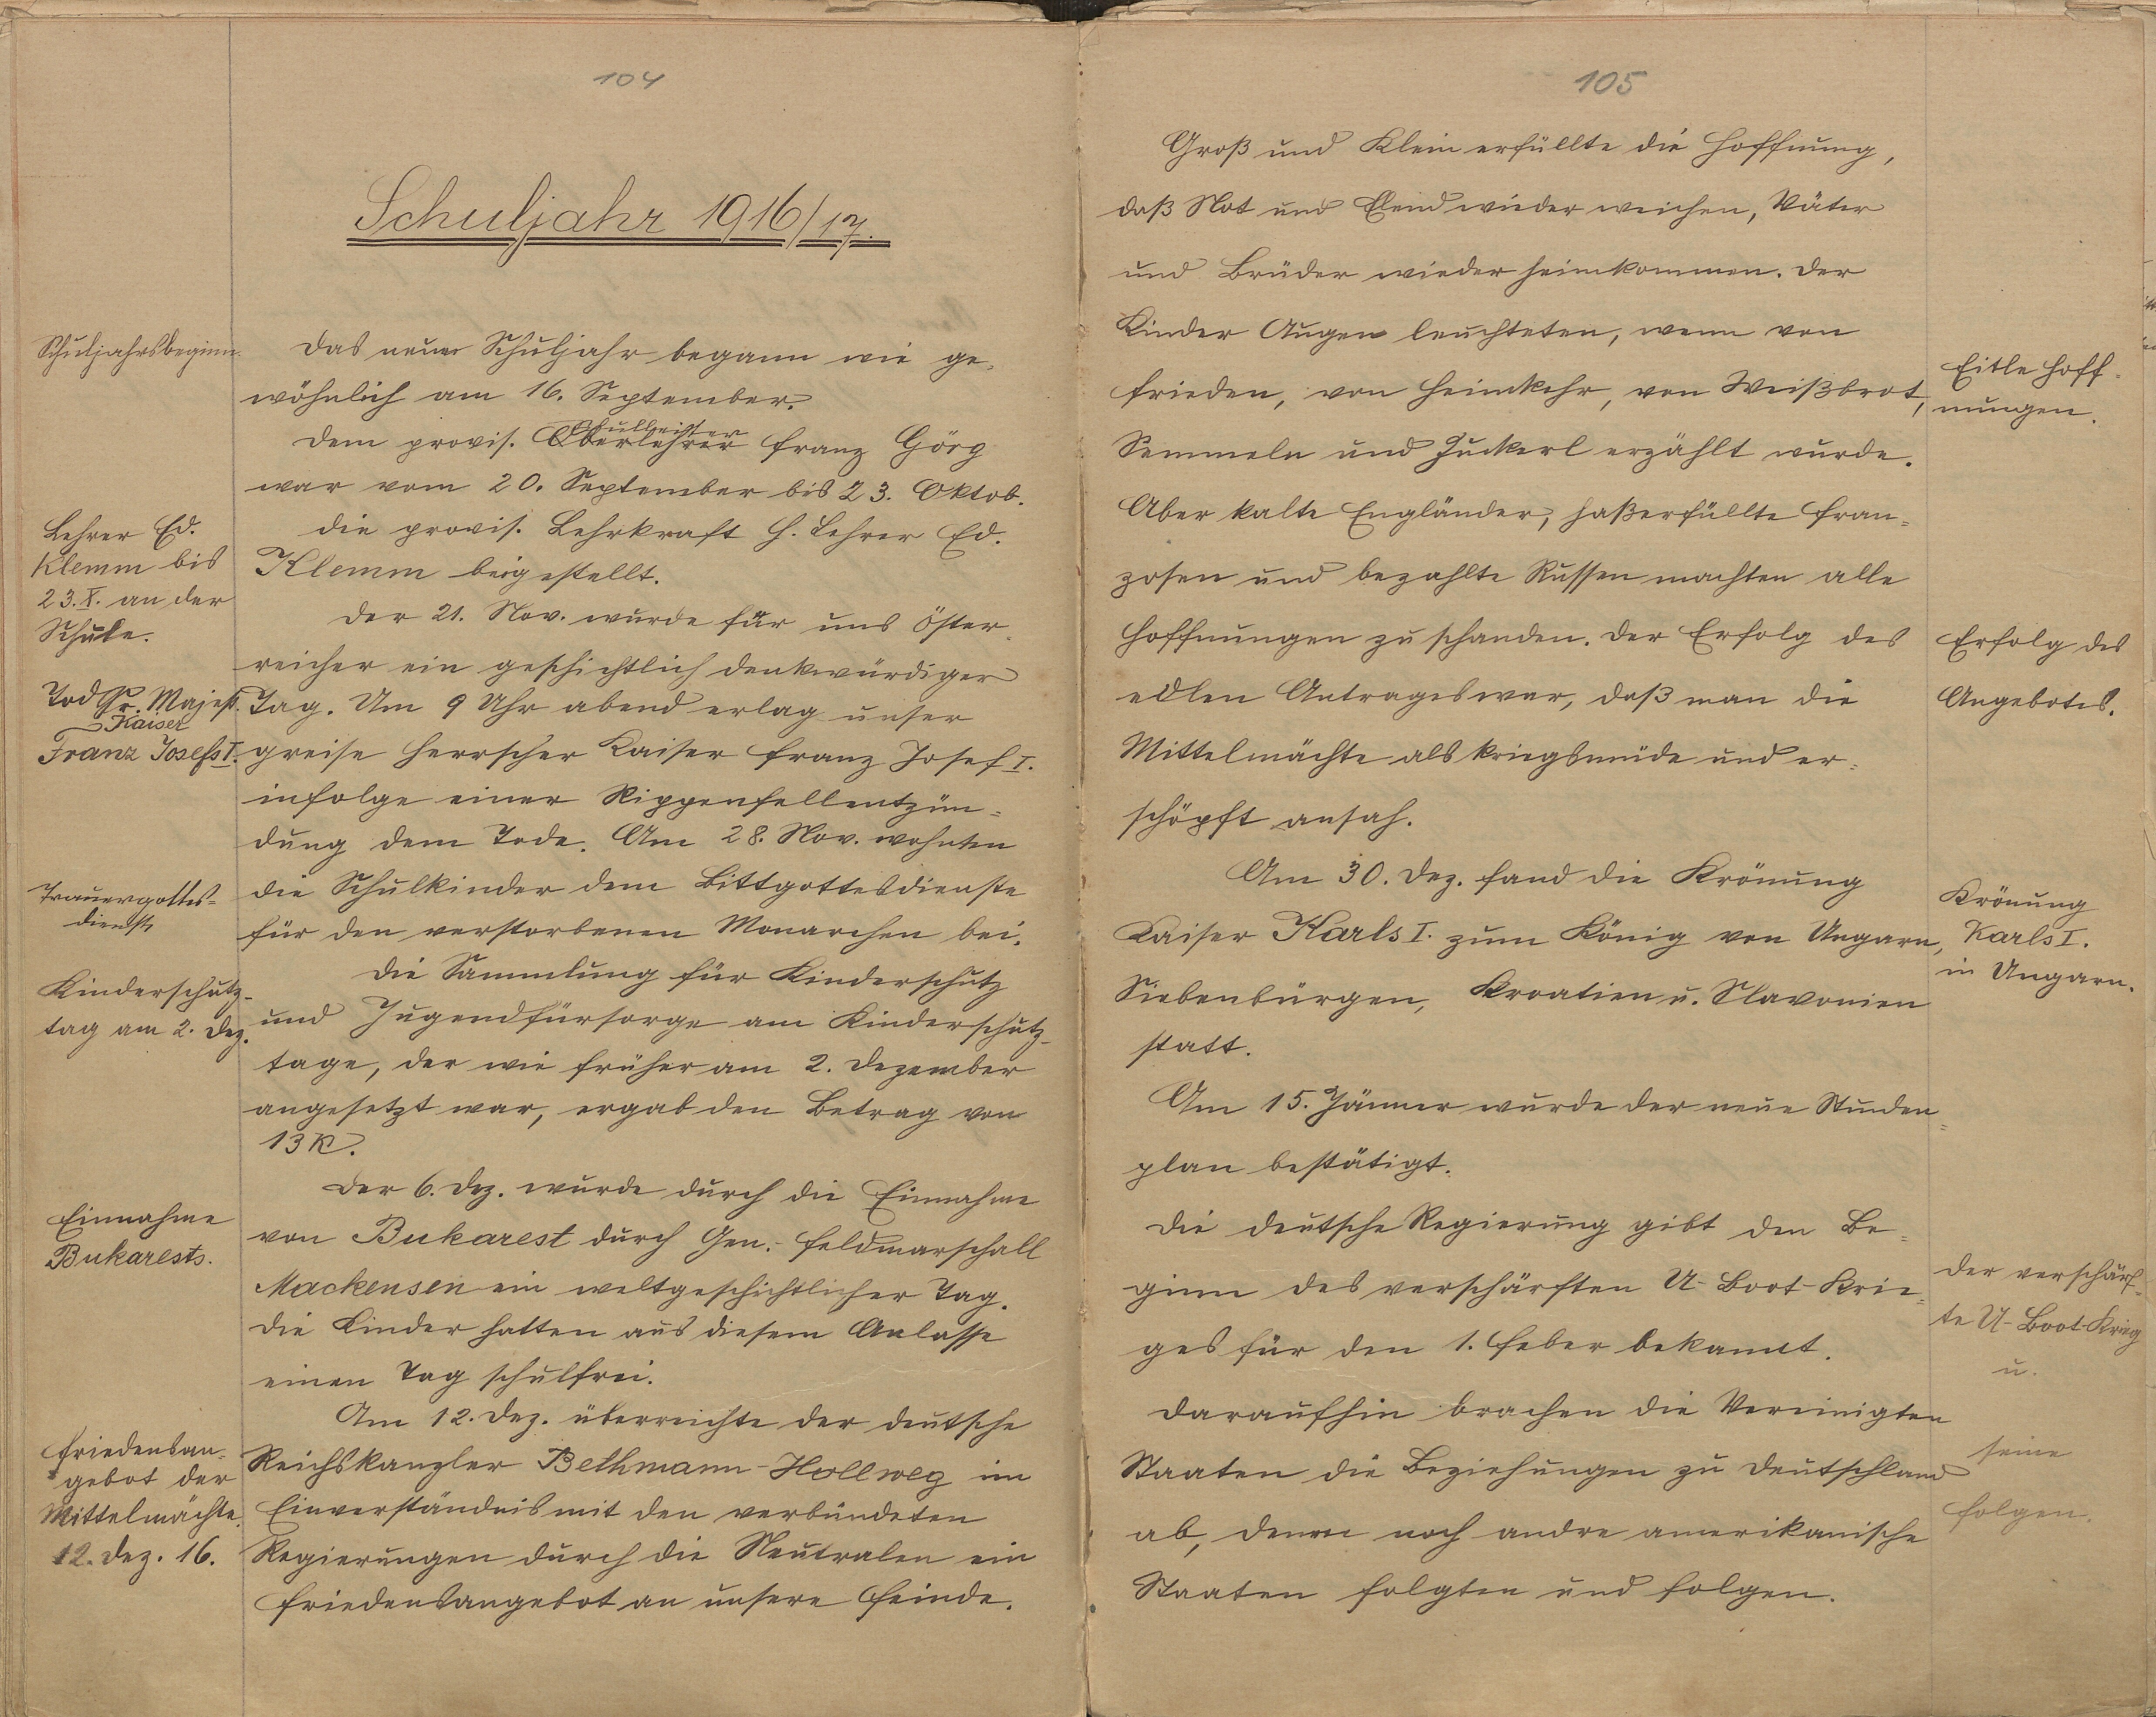 104
Schuljahr 1916/17.
Schuljahrsbeginn.
Das neue Schuljahr begann wie ge-
wöhnlich am 16. September.
Schulleiter
Dem provis. Oberlehrer Franz Görg
war vom 20. September bis 23. Oktob.
die provis. Lehrkraft H. Lehrer Ed.
Klemm beigestellt.
Lehrer Ed.
Klemm bis
23. X. an der
Schule.
Der 21. Nov. wurde für uns Öster-
reicher ein geschichtlich denkwürdiger
Tag. Um 9 Uhr abend erlag unser
greise Herrscher Kaiser Franz Josef I.
infolge einer Rippenfellentzün=
dung dem Tode. Am 28. Nov. wohnten
die Schulkinder dem Bittgottesdienste
für den verstorbenen Monarchen bei.
Tod Sr. Majest.
Kaiser
Franz Josefs I.
Trauergottes=
dienst
Die Sammlung für Kinderschutz
und Jugendfürsorge am Kinderschutz-
tage, der wie früher am 2. Dezember
angesetzt war, ergab den Betrag von
13 K.
Kinderschutz-
tag am 2. Dez.
Der 6. Dez. wurde durch die Einnahme
von Bukarest durch Gen.-Feldmarschall
Mackensen ein weltgeschichtlicher Tag.
Die Kinder hatten aus diesem Anlasse
einen Tag schulfrei.
Einnahme
Bukarests.
Am 12. Dez. überreichte der deutsche
Reichskanzler Bethmann-Hollweg im
Einverständnis mit den verbündeten
Regierungen durch die Neutralen ein
Friedensangebot an unsere Feinde.
Friedensan-
gebot der
Mittelmächte.
12. Dez. 16.
105
Groß und Klein erfüllte die Hoffnung,
daß Not und Elend wieder weichen, Väter
und Brüder wieder heimkommen. Der
Kinder Augen leuchteten, wenn von
Frieden, von Heimkehr, von Weißbrot,
Semmeln und Zuckerl erzählt wurde.
Aber kalte Engländer, haßerfüllte Fran=
zosen und bezahlte Russen machten alle
Hoffnungen zu schanden. Der Erfolg des
edlen Antrages war, daß man die
Mittelmächte als kriegsmüde und er=
schöpft ansah.
Eitle Hoff-
nungen.
Erfolg des
Angebotes.
Am 30. Dez. fand die Krönung
Kaiser Karls I. zum König von Ungarn,
Siebenbürgen, Kroatien u. Slavonien
statt.
Krönung
Karls I.
in Ungarn.
Am 15. Jänner wurde der neue Stunden=
plan bestätigt.
Die deutsche Regierung gibt den Be=
ginn des verschärften U-Boot-Krie=
ges für den 1. Feber bekannt.
Daraufhin brachen die Vereinigten
Staaten die Beziehungen zu Deutschland
ab, denen noch andre amerikanische
Staaten folgten und folgen.
Der verschärf=
te U-Boot-Krieg
u.
seine
Folgen.